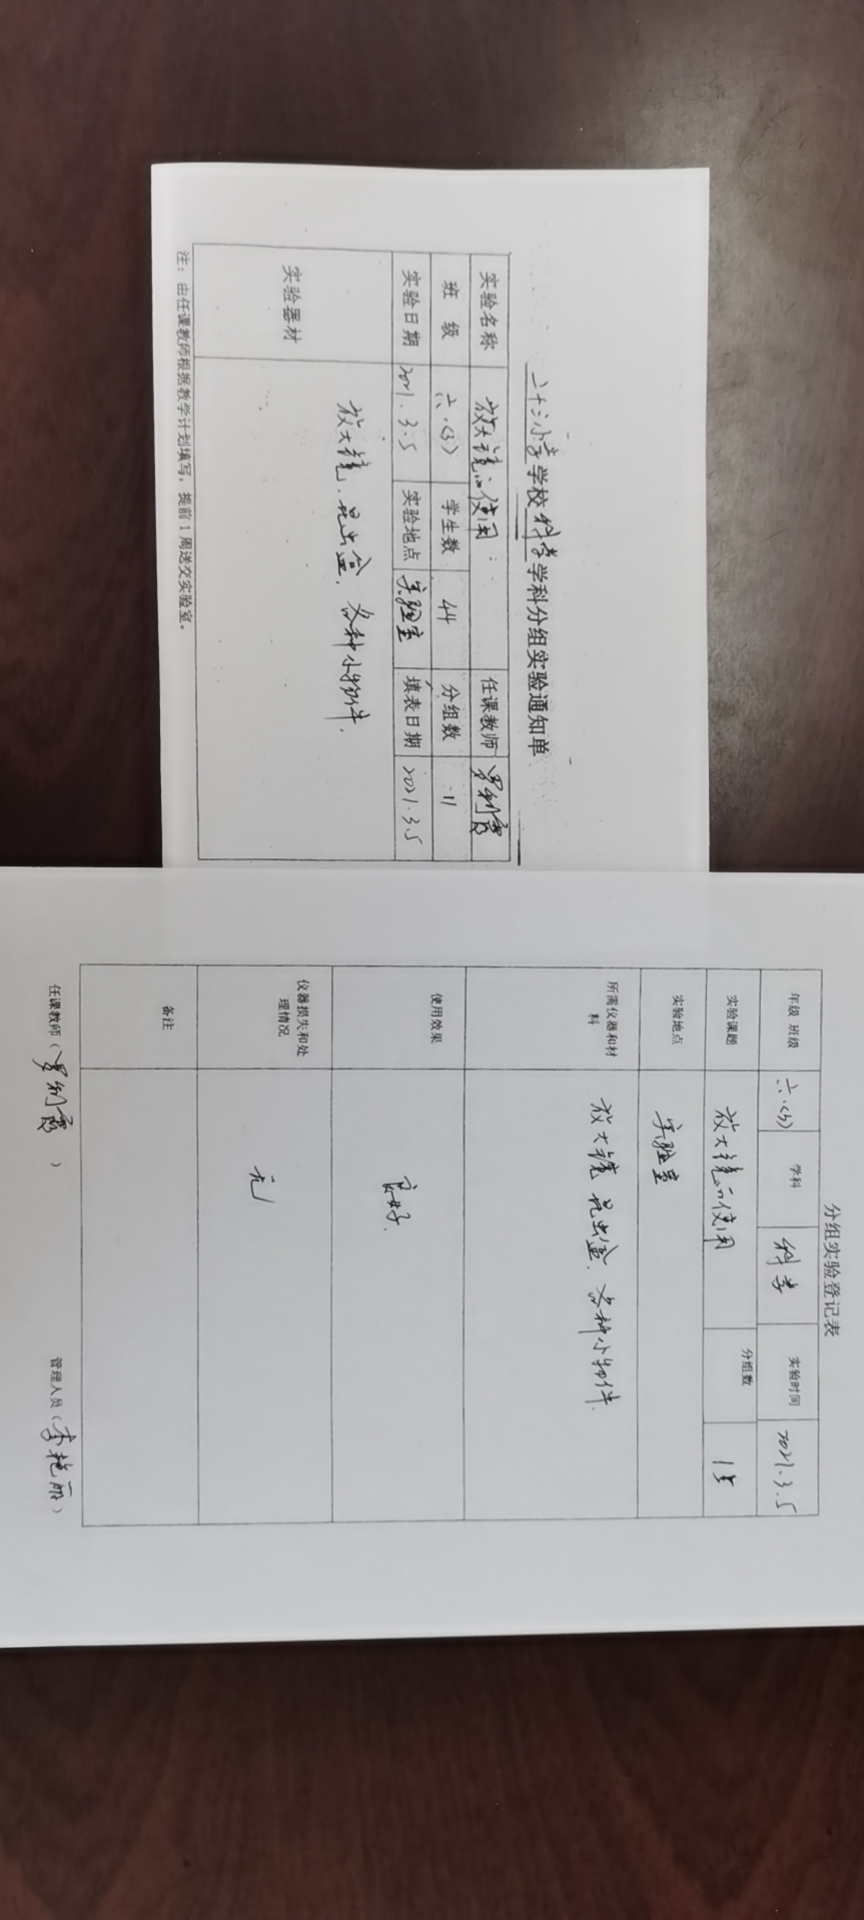 二十三小学学校科学学科分组实验通知单
实验名称 放大镜的使用 任课教师
班 级 六.(3) 学生数 44 分组数 11
实验日期 2021.3.5 实验地点 实验室 填表日期 2021.3.5
实验器材 放大镜、昆虫盒、各种小物件.
注：由任课教师根据教学计划填写，提前1周送交实验室。
分组实验登记表
年级 班级 六.(3) 学科 科学 实验时间 2021.3.5
实验课题 放大镜的使用 分组数
实验地点 实验室
所需仪器和材料 放大镜 昆虫盒、各种小物件.
使用效果 良好.
仪器损失和处理情况 无
备注
任课教师（ ） 管理人员（李艳丽）